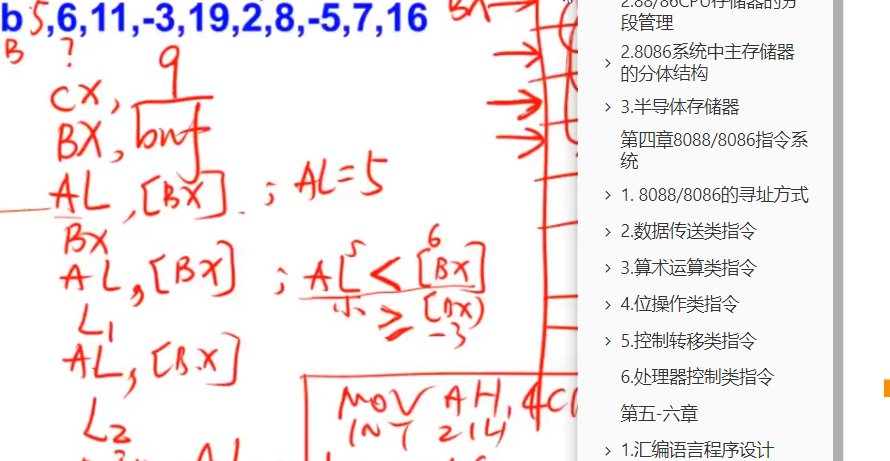 b 5,6,11,-3,19,2,8,-5,7,16
B ?
CX, 9
BX, buf
AL, [BX]. ; AL=5
BX
AL, [BX] ; AL < [BX]
5 6
小 ≥ [BX)
-3
L1
AL, [BX]
L2
MOV AH, 4C
INT 21H
AL
BX
2.88/86CPU存储器的分
段管理
2.8086系统中主存储器
的分体结构
3.半导体存储器
第四章8088/8086指令系
统
1. 8088/8086的寻址方式
2.数据传送类指令
3.算术运算类指令
4.位操作类指令
5.控制转移类指令
6.处理器控制类指令
第五-六章
1.汇编语言程序设计